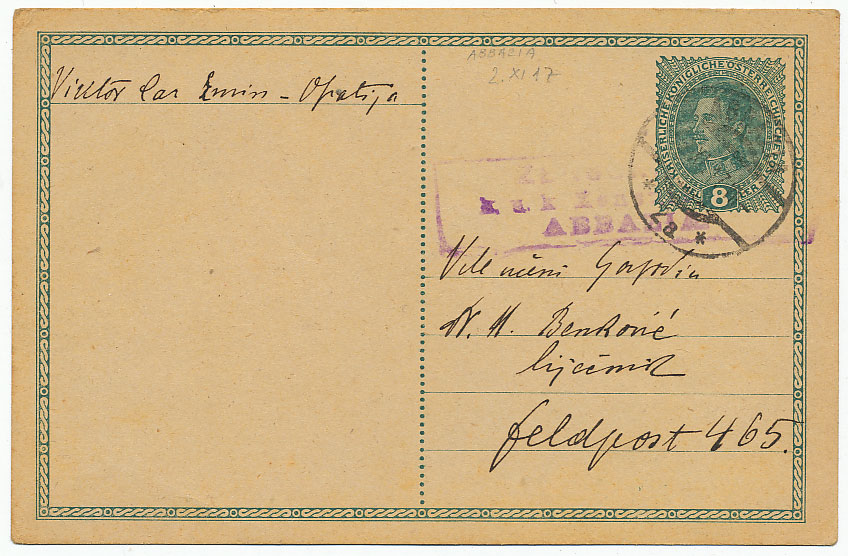 ABBAZIA
2. XI 17
Viktor Car Emin - Opatija
KAISERLICHE KÖNIGLICHE ÖSTERREICHISCHE
8
k. u. k.
ABBAZIA
Velecijeni Gospodin
M. Benković
liječnik
Feldpost 465.